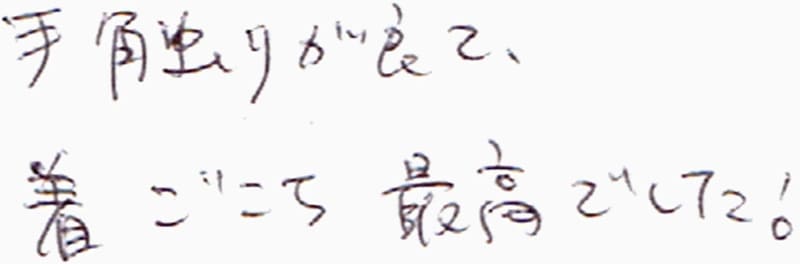 手触りが良て、
着ごこち最高でした!